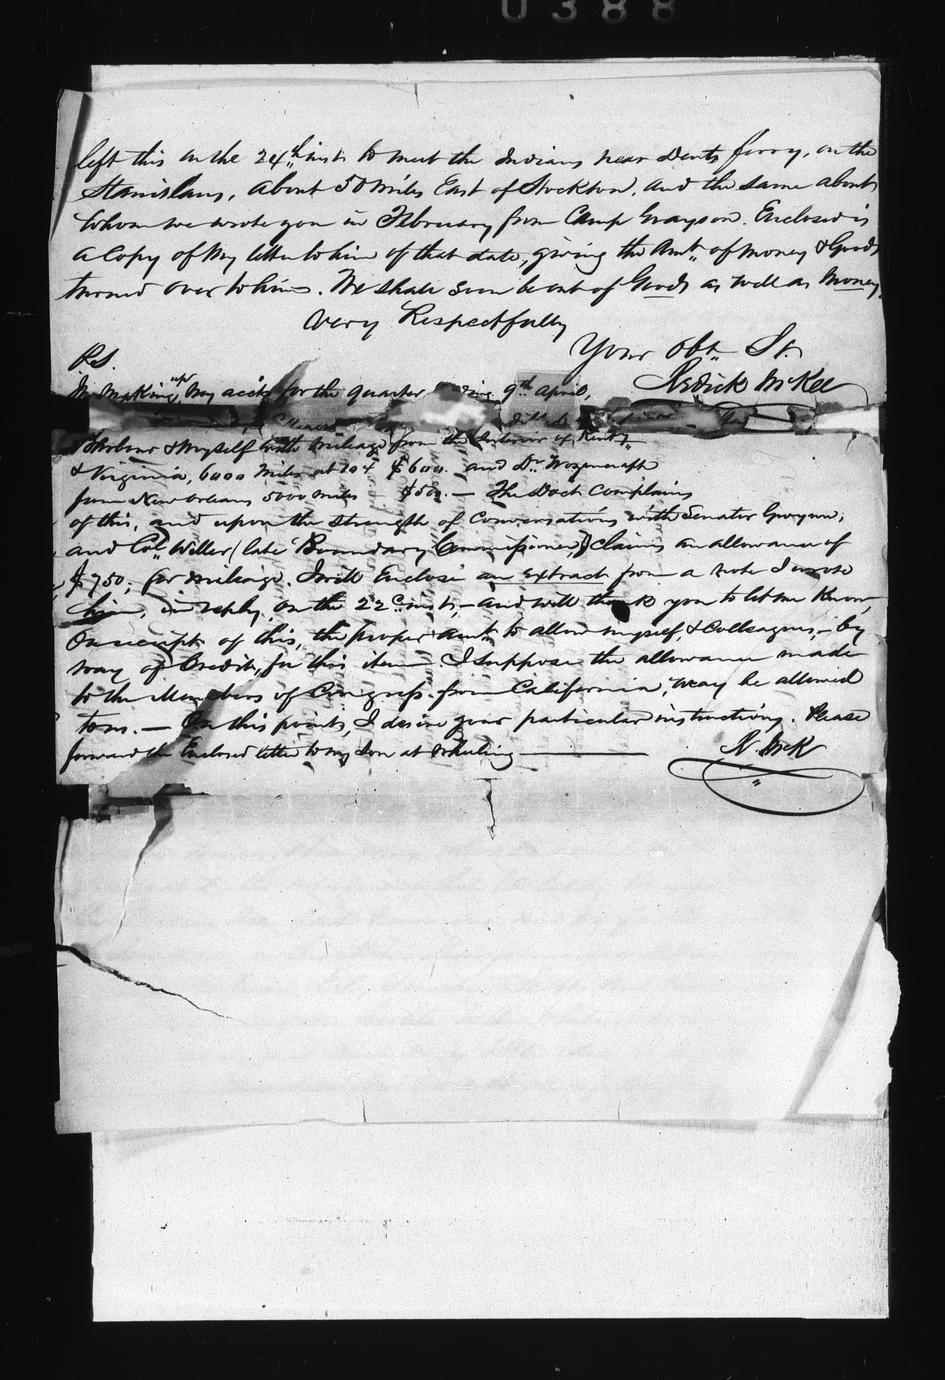 0388
left this on the 24th inst. to meet the Indians near Dents ferry, on the
Stanislaus, about 30 miles East of Stockton, and the same about
whom we wrote you in February from Camp Grayson. Enclosed is
a Copy of my letter to him of that date, giving the Amt. of money & Goods
turned over to him. We shall soon be out of Goods as well as money.
Very Respectfully
Your Obt. St.
Redick McKee
P.S.
In making up my accts for the quarter ending 9th April,
Barbour & myself with mileage from the interior of Kenty.
& Virginia, 6000 miles at 10¢ $600. and Dr. Wozencraft
from New Orleans 5000 miles — $500. — The Doct. Complains
of this, and upon the strength of conversations with Senator Gwynn,
and Col. Weller (late Boundary Commissioner,) claims an allowance of
$750, for mileage. I will Enclose an extract from a note I wrote
him, in reply, on the 22d inst, — and will thank you to let me know,
On receipt of this, the proper amt. to allow myself, & Colleagues, — by
way of Credit, for this item. I suppose the allowance made
to the Members of Congress from California, may be allowed
to us. — On this point, I desire your particular instructions. Please
forward the Enclosed letter to my Son at Wheeling
R. McK